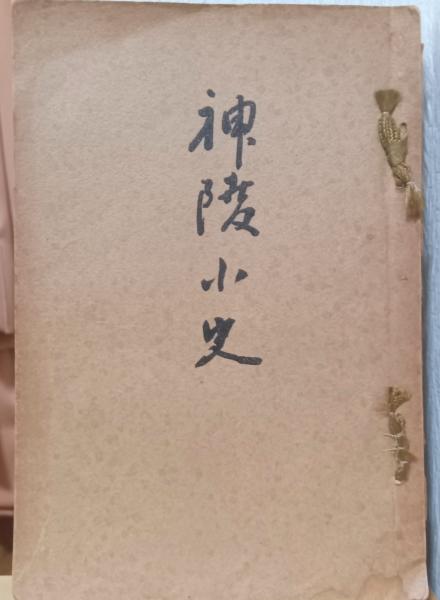 神陵小史